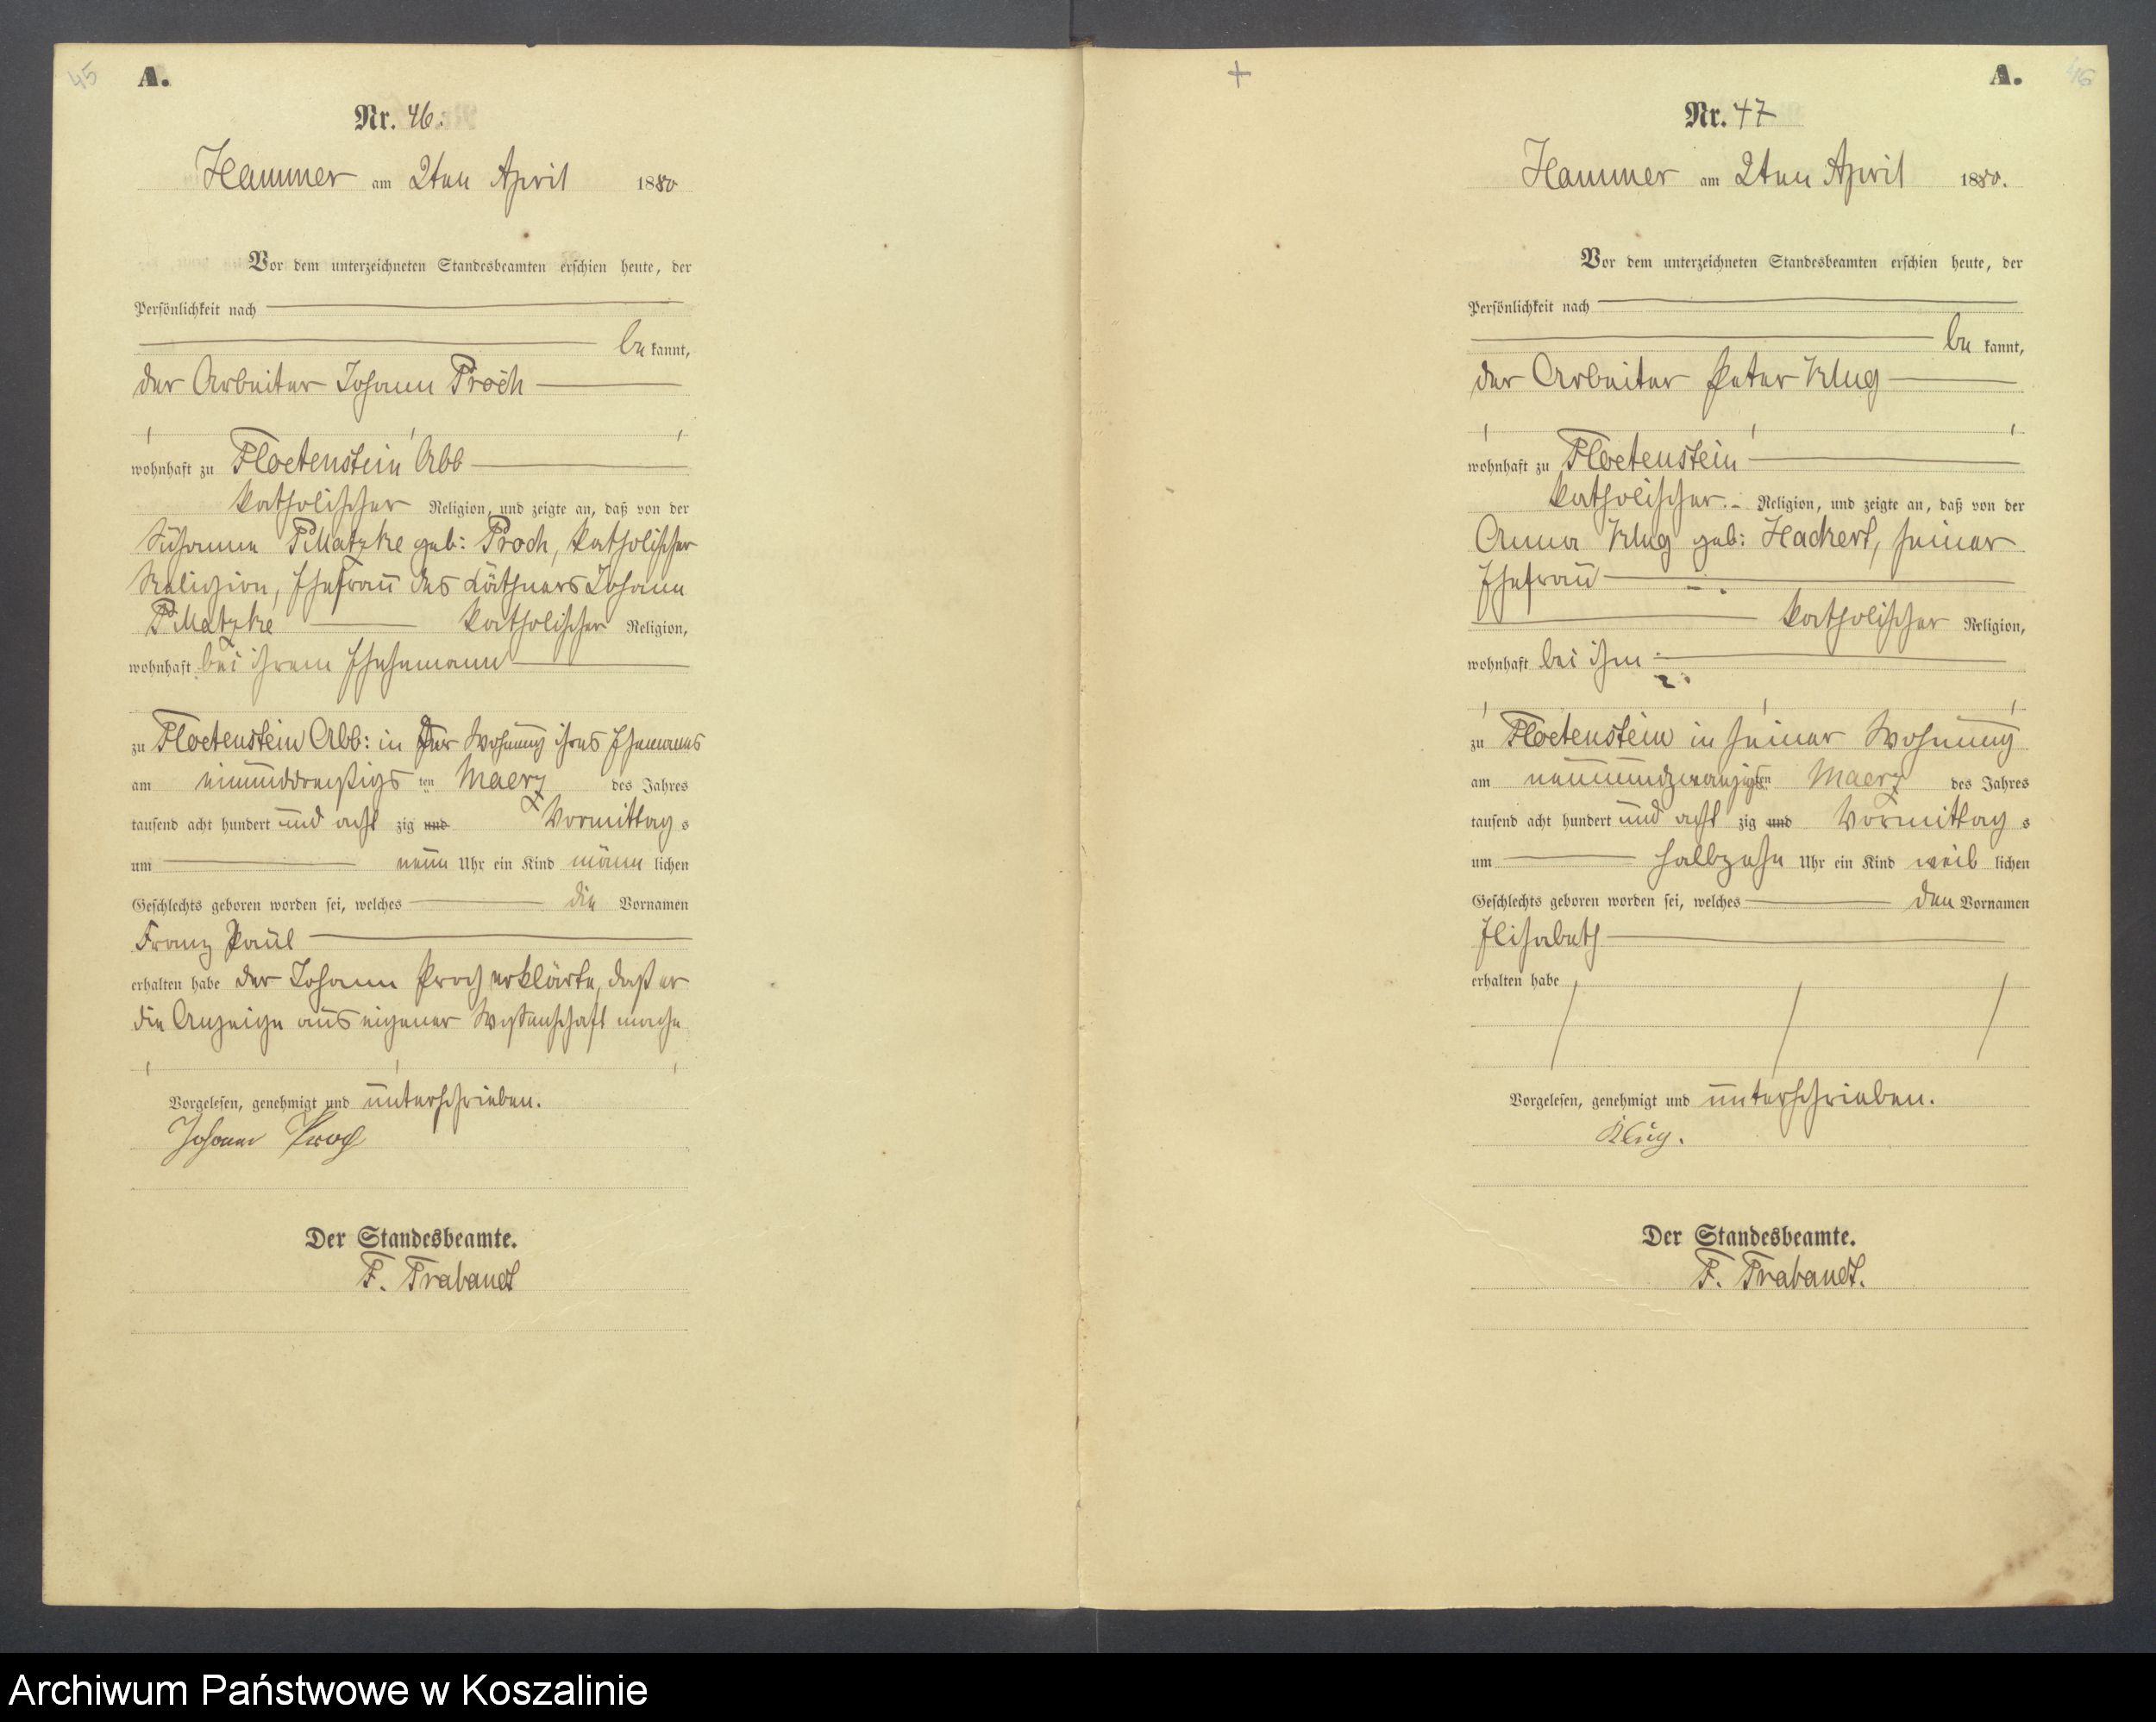 45
A.
Nr. 46.
Hammer am 2ten April 1880
Vor dem unterzeichneten Standesbeamten erschien heute, der
Persönlichkeit nach
be kannt,
der Arbeiter Johann Proch
wohnhaft zu Floetenstein Abb
katholischer Religion, und zeigte an, daß von der
Susanna geb: Proch, katholischer
Religion, Ehefrau des Käthners Johann
katholischer Religion,
wohnhaft bei ihrem Ehehemann
zu Floetenstein Abb: in der Wohnung ihres Ehemannes
am einunddreißigs ten Maerz des Jahres
tausend acht hundert und acht zig und Vormittag s
um neun Uhr ein Kind männ lichen
Geschlechts geboren worden sei, welches die Vornamen
Franz Paul
erhalten habe der Johann Proch erklärte, daß er
die Anzeige aus eigener Wißenschaft mache
Vorgelesen, genehmigt und unterschrieben.
Johann Proch
Der Standesbeamte.
F. Trabandt
A.
46
Nr. 47
Hammer am 2ten April 1880.
Vor dem unterzeichneten Standesbeamten erschien heute, der
Persönlichkeit nach
be kannt,
der Arbeiter Peter Klug
wohnhaft zu Floetenstein
katholischer Religion, und zeigte an, daß von der
Anna Klug geb: Hackert, seiner
Ehefrau
katholischer Religion,
wohnhaft bei ihm
zu Floetenstein in seiner Wohnung
am neunundzwanzigsten Maerz des Jahres
tausend acht hundert und acht zig und Vormittag s
um halbzehn Uhr ein Kind weib lichen
Geschlechts geboren worden sei, welches den Vornamen
Elisabeth
erhalten habe
Vorgelesen, genehmigt und unterschrieben.
Klug.
Der Standesbeamte.
F. Trabandt.
Archiwum Państwowe w Koszalinie